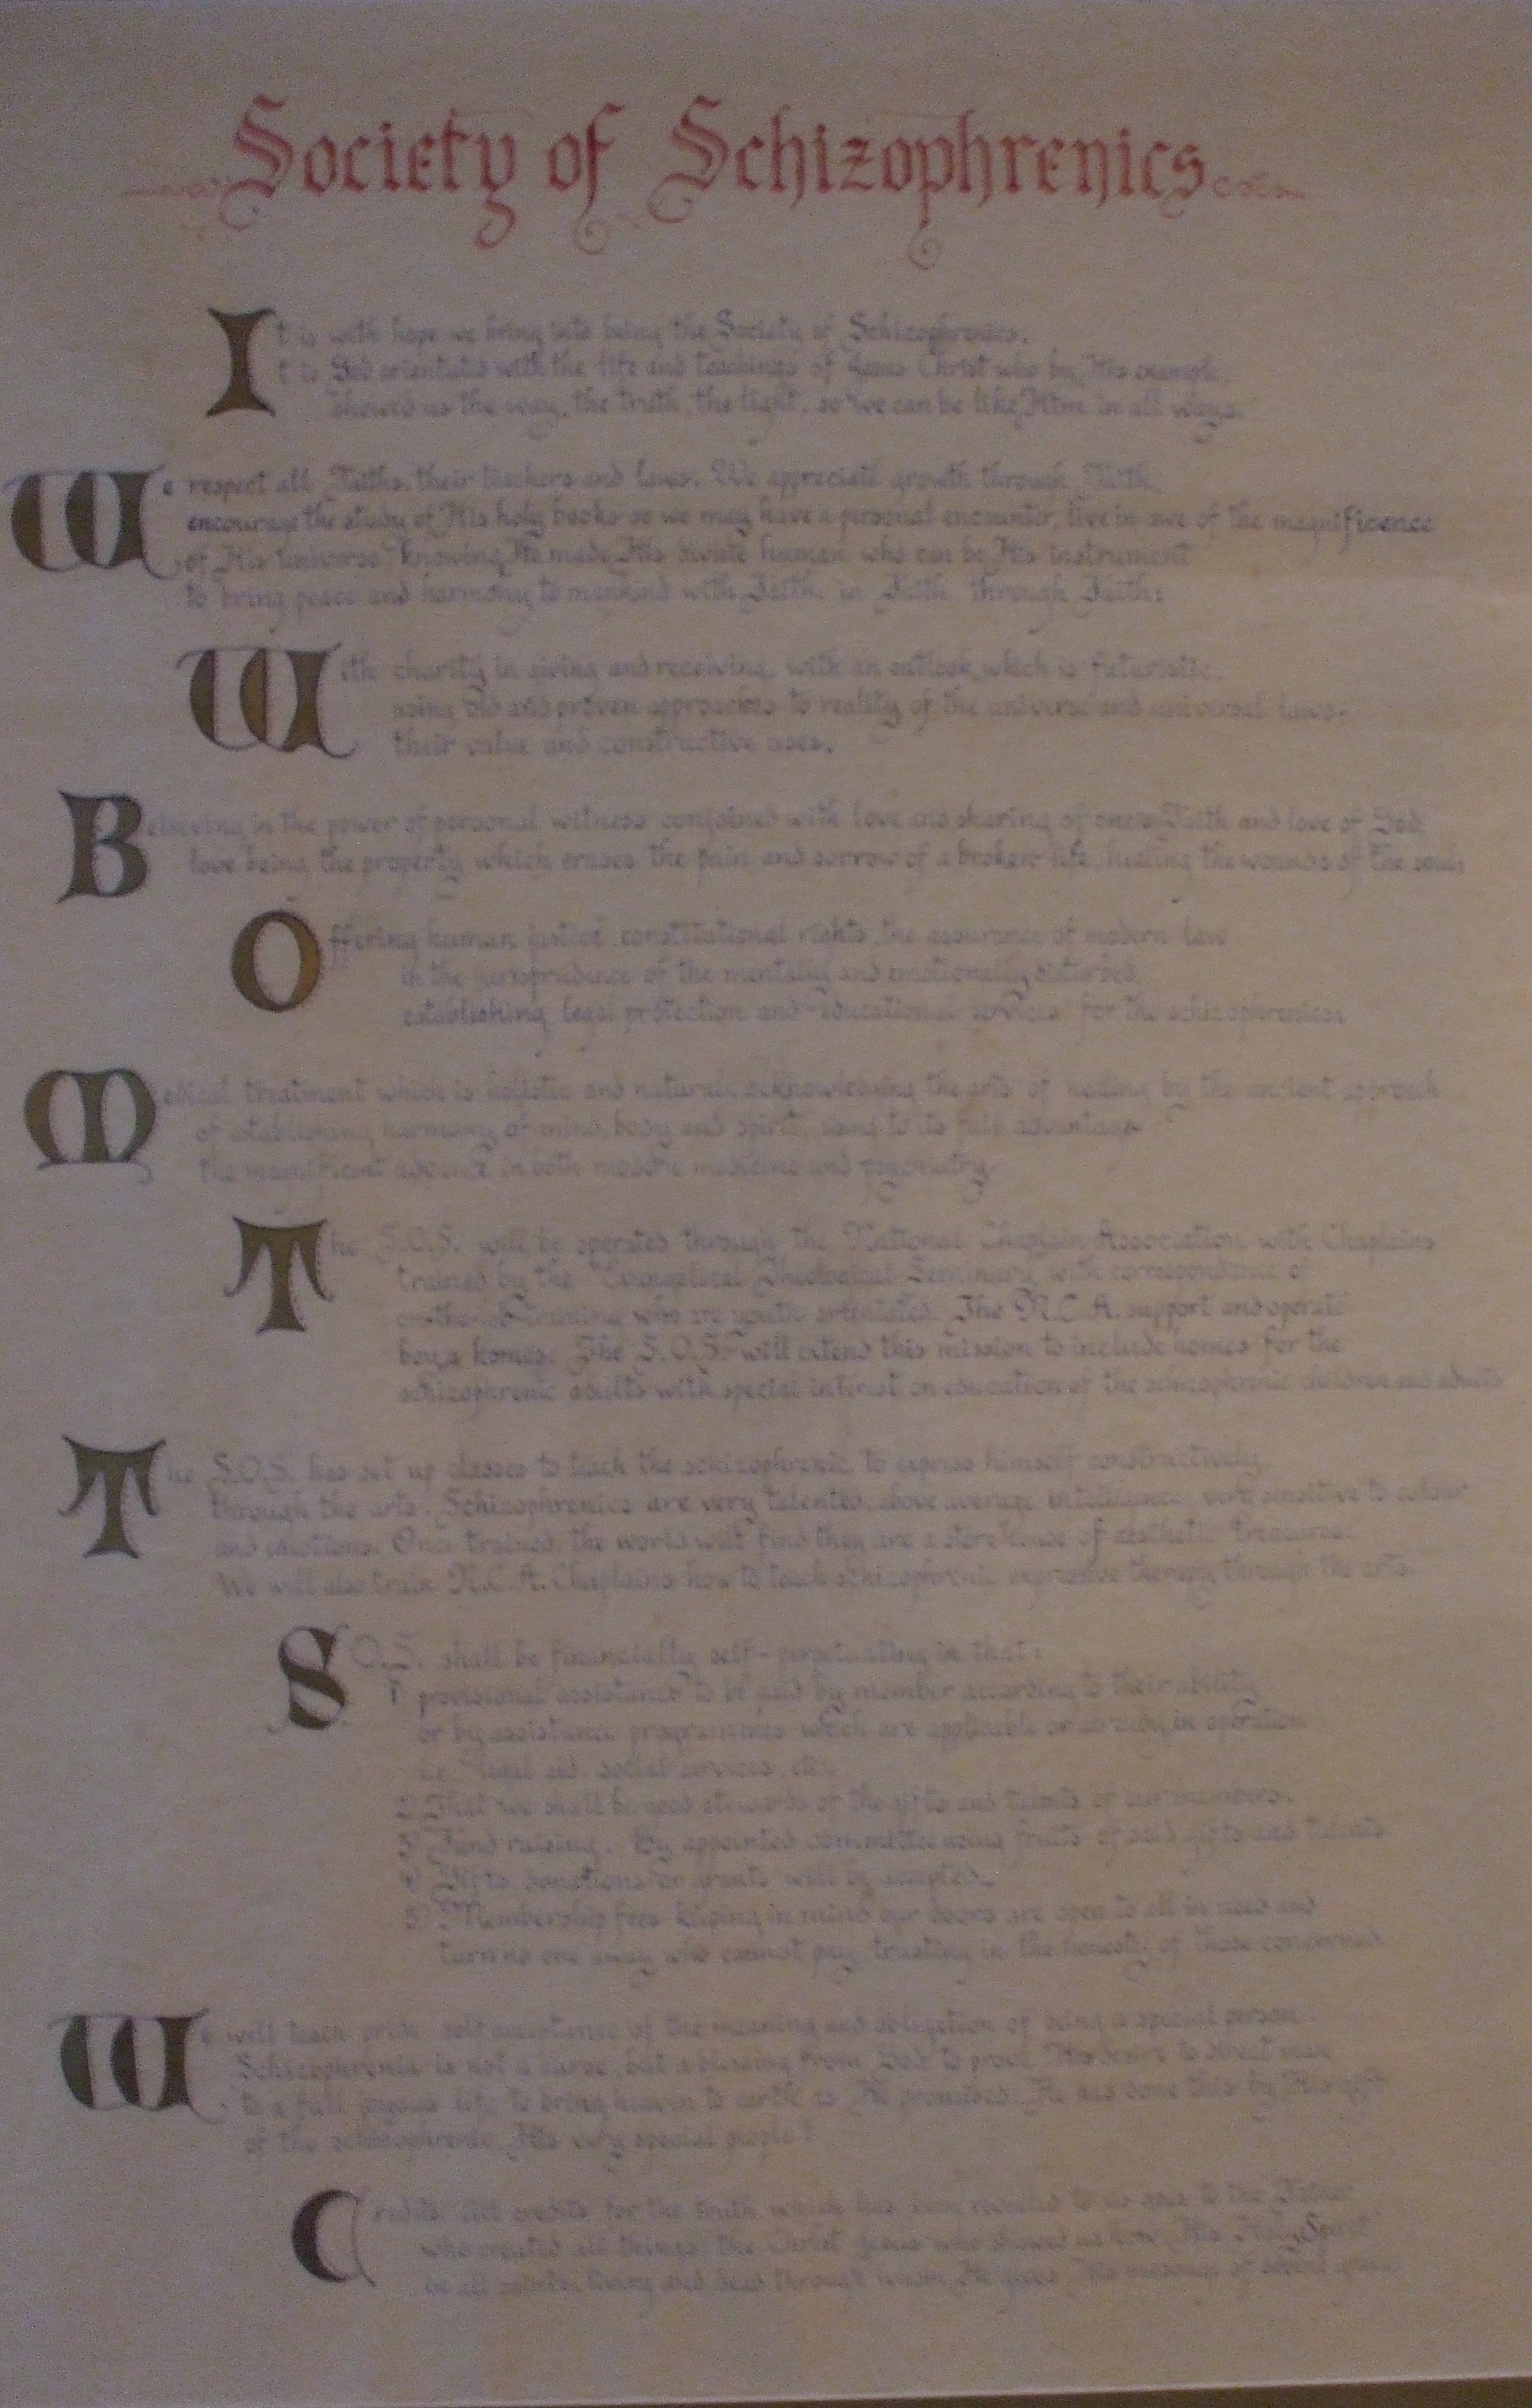 Society of Schizophrenics
It is with hope we bring into being the Society of Schizophrenics.
It is God orientated with the life and teachings of Jesus Christ who by His example,
showed us the way, the truth, the light, so we can be like Him in all ways.
We respect all Faiths, their teachers and laws. We appreciate growth through Faith,
encourage the study of His holy books so we may have a personal encounter, live in awe of the magnificence
of His universe knowing He made His divine human who can be His instrument
to bring peace and harmony to mankind with Faith, in Faith, through Faith:
With charity in giving and receiving, with an outlook which is futuristic,
using old and proven approaches to reality of the universe and universal laws,
their value and constructive uses.
Believing in the power of personal witness conjoined with love and sharing of one's Faith and love of God,
love being the property which erases the pain and sorrow of a broken life, healing the wounds of the soul;
Offering human justice, constitutional rights, the assurance of modern law
in the jurisprudence of the mentally and emotionally disturbed,
establishing legal protection and educational services for the schizophrenics;
Medical treatment which is holistic and natural, acknowledging the arts of healing by the ancient approach
of establishing harmony of mind, body and spirit, using to its full advantage
the magnificent advance in both modern medicine and psychiatry.
The S.O.S. will be operated through the National Chaplain Association with Chaplains
trained by the Evangelical Theological Seminary with correspondence of
training who are youth orientated. The N.C.A. support and operate
boys homes. The S.O.S. will extend this mission to include homes for the
schizophrenic adults with special interest on education of the schizophrenic children and adults
The S.O.S. has set up classes to teach the schizophrenic to express himself constructively
through the arts. Schizophrenics are very talented, above average intelligence, very sensitive to colour
and emotions. Once trained, the world will find they are a storehouse of aesthetic treasures.
We will also train N.C.A. Chaplains how to teach schizophrenic expressive therapy through the arts.
S.O.S. shall be financially self-perpetuating in that:
1 provisional assistance to be paid by member according to their ability
or by assistance programmes which are applicable or already in operation
i.e. legal aid, social services, etc.
2 That we shall be good stewards of the gifts and talents of our members.
3 Fund raising. By appointed committee using fruits of said gifts and talents
4 Gifts, donations or grants will be accepted.
5 Membership fees keeping in mind our doors are open to all in need and
turn no one away who cannot pay, trusting in the honesty of those concerned.
We will teach pride, self acceptance of the meaning and obligation of being a special person.
Schizophrenia is not a curse, but a blessing from God to prove His desire to direct man
to a full joyous life to bring heaven to earth as He promised. He has done this by His gift
of the schizophrenic, His very special people!
Credits: All credits for the truth which has been revealed to us goes to the Father
who created all things, the Christ Jesus who showed us how, His Holy Spirit
in all saints, living and dead through whom He gives His message of